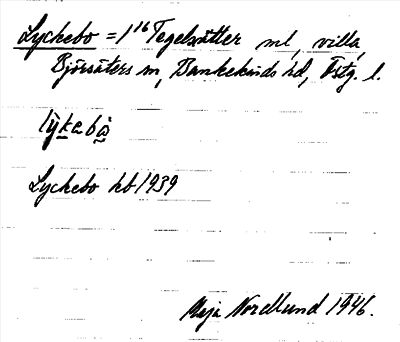 Lyckebo = 1¹⁶ Tegelsätter ml, villa,
Björsäters sn, Bankekinds hd, Östg. l.
Lyckebo hb 1939
Maja Nordlund 1946.